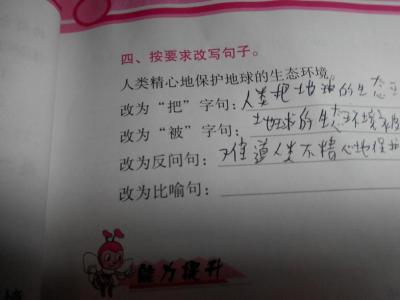 四、按要求改写句子。
人类精心地保护地球的生态环境。
改为“把”字句：人类把地球的生态
改为“被”字句：地球的生态环境被
改为反问句：难道人类不精心地保护
改为比喻句：
能力提升